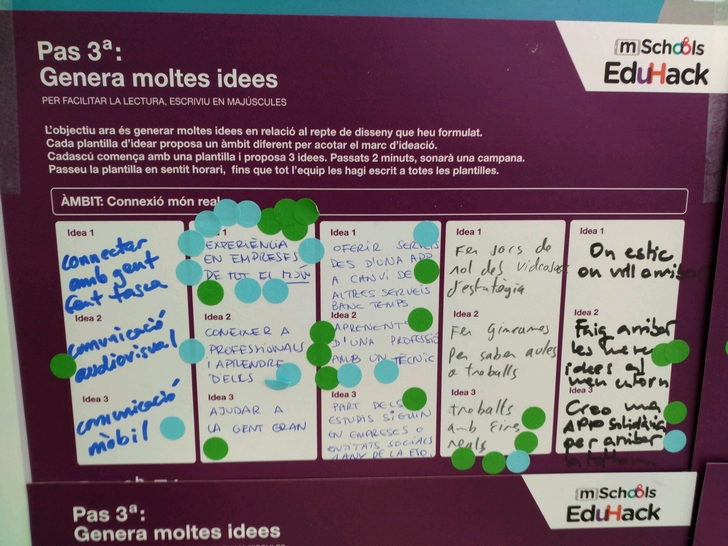 Pas 3ª:
Genera moltes idees
PER FACILITAR LA LECTURA, ESCRIVIU EN MAJÚSCULES
[m]Schools
EduHack
L'objectiu ara és generar moltes idees en relació al repte de disseny que heu formulat.
Cada plantilla d'idear proposa un àmbit diferent per acotar el marc d'ideació.
Cadascú comença amb una plantilla i proposa 3 idees. Passats 2 minuts, sonarà una campana.
Passeu la plantilla en sentit horari, fins que tot l'equip les hagi escrit a totes les plantilles.
ÀMBIT: Connexió món real
Idea 1
connectar
amb gent
fent tasca
Idea 2
comunicació
audiovisual
Idea 3
comunicació
mòbil
1
EXPERIÈNCIA
EN EMPRESES
DE TOT EL MÓN
Idea 2
CONEIXER A
PROFESSIONALS
I APRENDRE
D'ELLS
Idea 3
AJUDAR A
LA GENT GRAN
Idea 1
OFERIR SERVEIS
DES D'UNA APP
A CANVI DE
ALTRES SERVEIS
BANC TEMPS
Idea 2
APRENENT
D'UNA PROFESSIÓ
AMB UN TÈCNIC
Idea 3
PART DELS
ESTUDIS SIGUIN
EN EMPRESES O
ENTITATS SOCIALS
DE LA ESO.
Idea 1
Fer jocs de
rol des
d'estratègia
Idea 2
Fer
per saber
a treballs
Idea 3
treballs
amb eines
reals
Idea 1
On estic
on vull arribar
Idea 2
Faig arribar
les meves
idees al
meu entorn
Idea 3
Creo una
APP solidària
per arribar
Pas 3ª:
Genera moltes idees
[m]Schools
EduHack